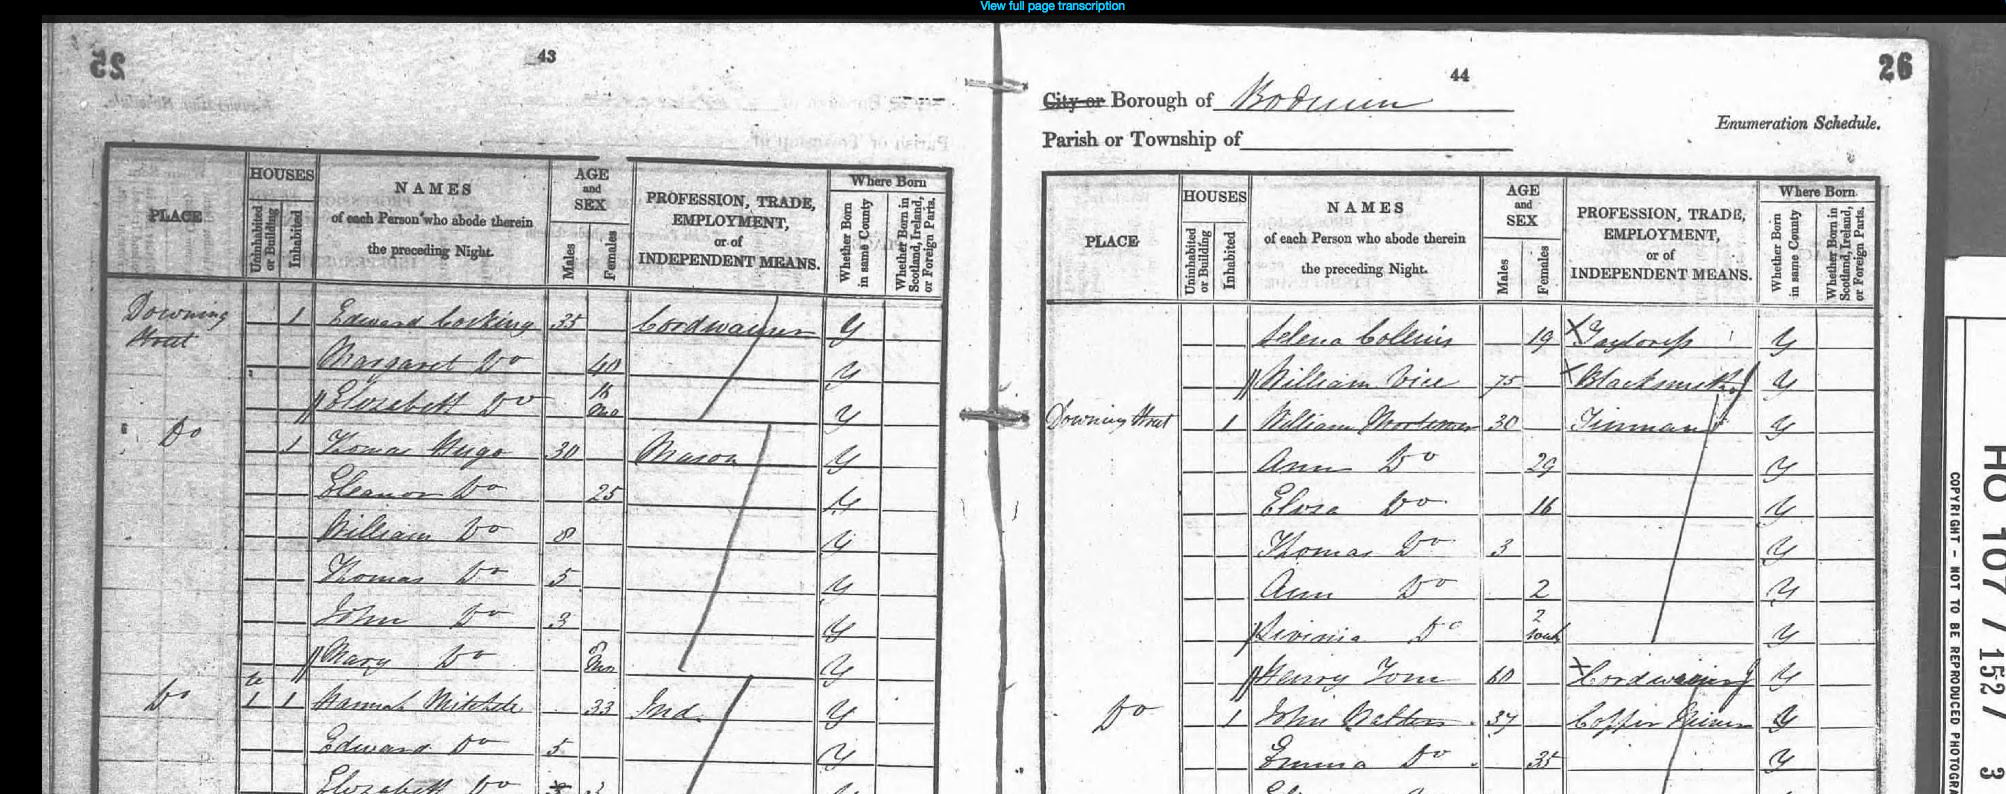 View full page transcription
25
43
PLACE
HOUSES
Uninhabited or Building
Inhabited
NAMES
of each Person who abode therein
the preceding Night.
AGE
and
SEX
Males
Females
PROFESSION, TRADE,
EMPLOYMENT,
or of
INDEPENDENT MEANS.
Where Born
Whether Born in same County
Whether Born in Scotland, Ireland, or Foreign Parts.
Downing Street 1 Edward Corking 35 Cordwainer Y
Margaret Do 40 Y
Elizabeth Do Mo Y
Do 1 Thomas Hugo 30 Mason Y
Eleanor Do 25 Y
William Do 8 Y
Thomas Do 5 Y
John Do 3 Y
Mary Do Mo Y
Do 1 1 Hannah Mitchele 33 Ind. Y
Edward Do 5 Y
Elizabeth Do
26
44
City or Borough of Bodmin
Parish or Township of
Enumeration Schedule.
PLACE
HOUSES
Uninhabited or Building
Inhabited
NAMES
of each Person who abode therein
the preceding Night.
AGE
and
SEX
Males
Females
PROFESSION, TRADE,
EMPLOYMENT,
or of
INDEPENDENT MEANS.
Where Born
Whether Born in same County
Whether Born in Scotland, Ireland, or Foreign Parts.
Selena Collins 19 Tayloress Y
William Vice 75 Blacksmith Y
Downing Street 1 William Mortimer 30 Tinman Y
Ann Do 29 Y
Eliza Do 16 Y
Thomas Do 3 Y
Ann Do 2 Y
Do 2 Y
Henry Tom 60 Cordwainer J Y
Do 1 John 37 Copper Miner Y
Emma Do 35 Y
HO 107 / 1527
COPYRIGHT - NOT TO BE REPRODUCED